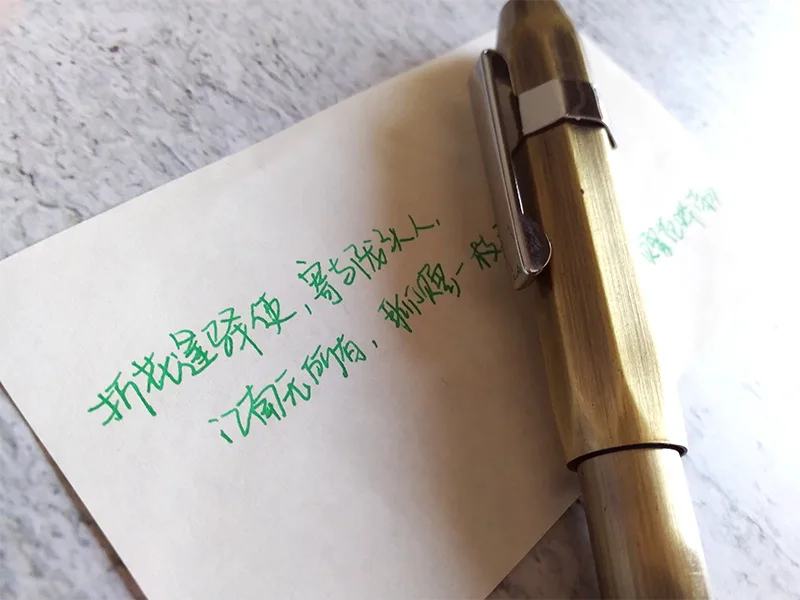 折花逢驿使,寄与陇头人.
江南无所有,聊赠一枝